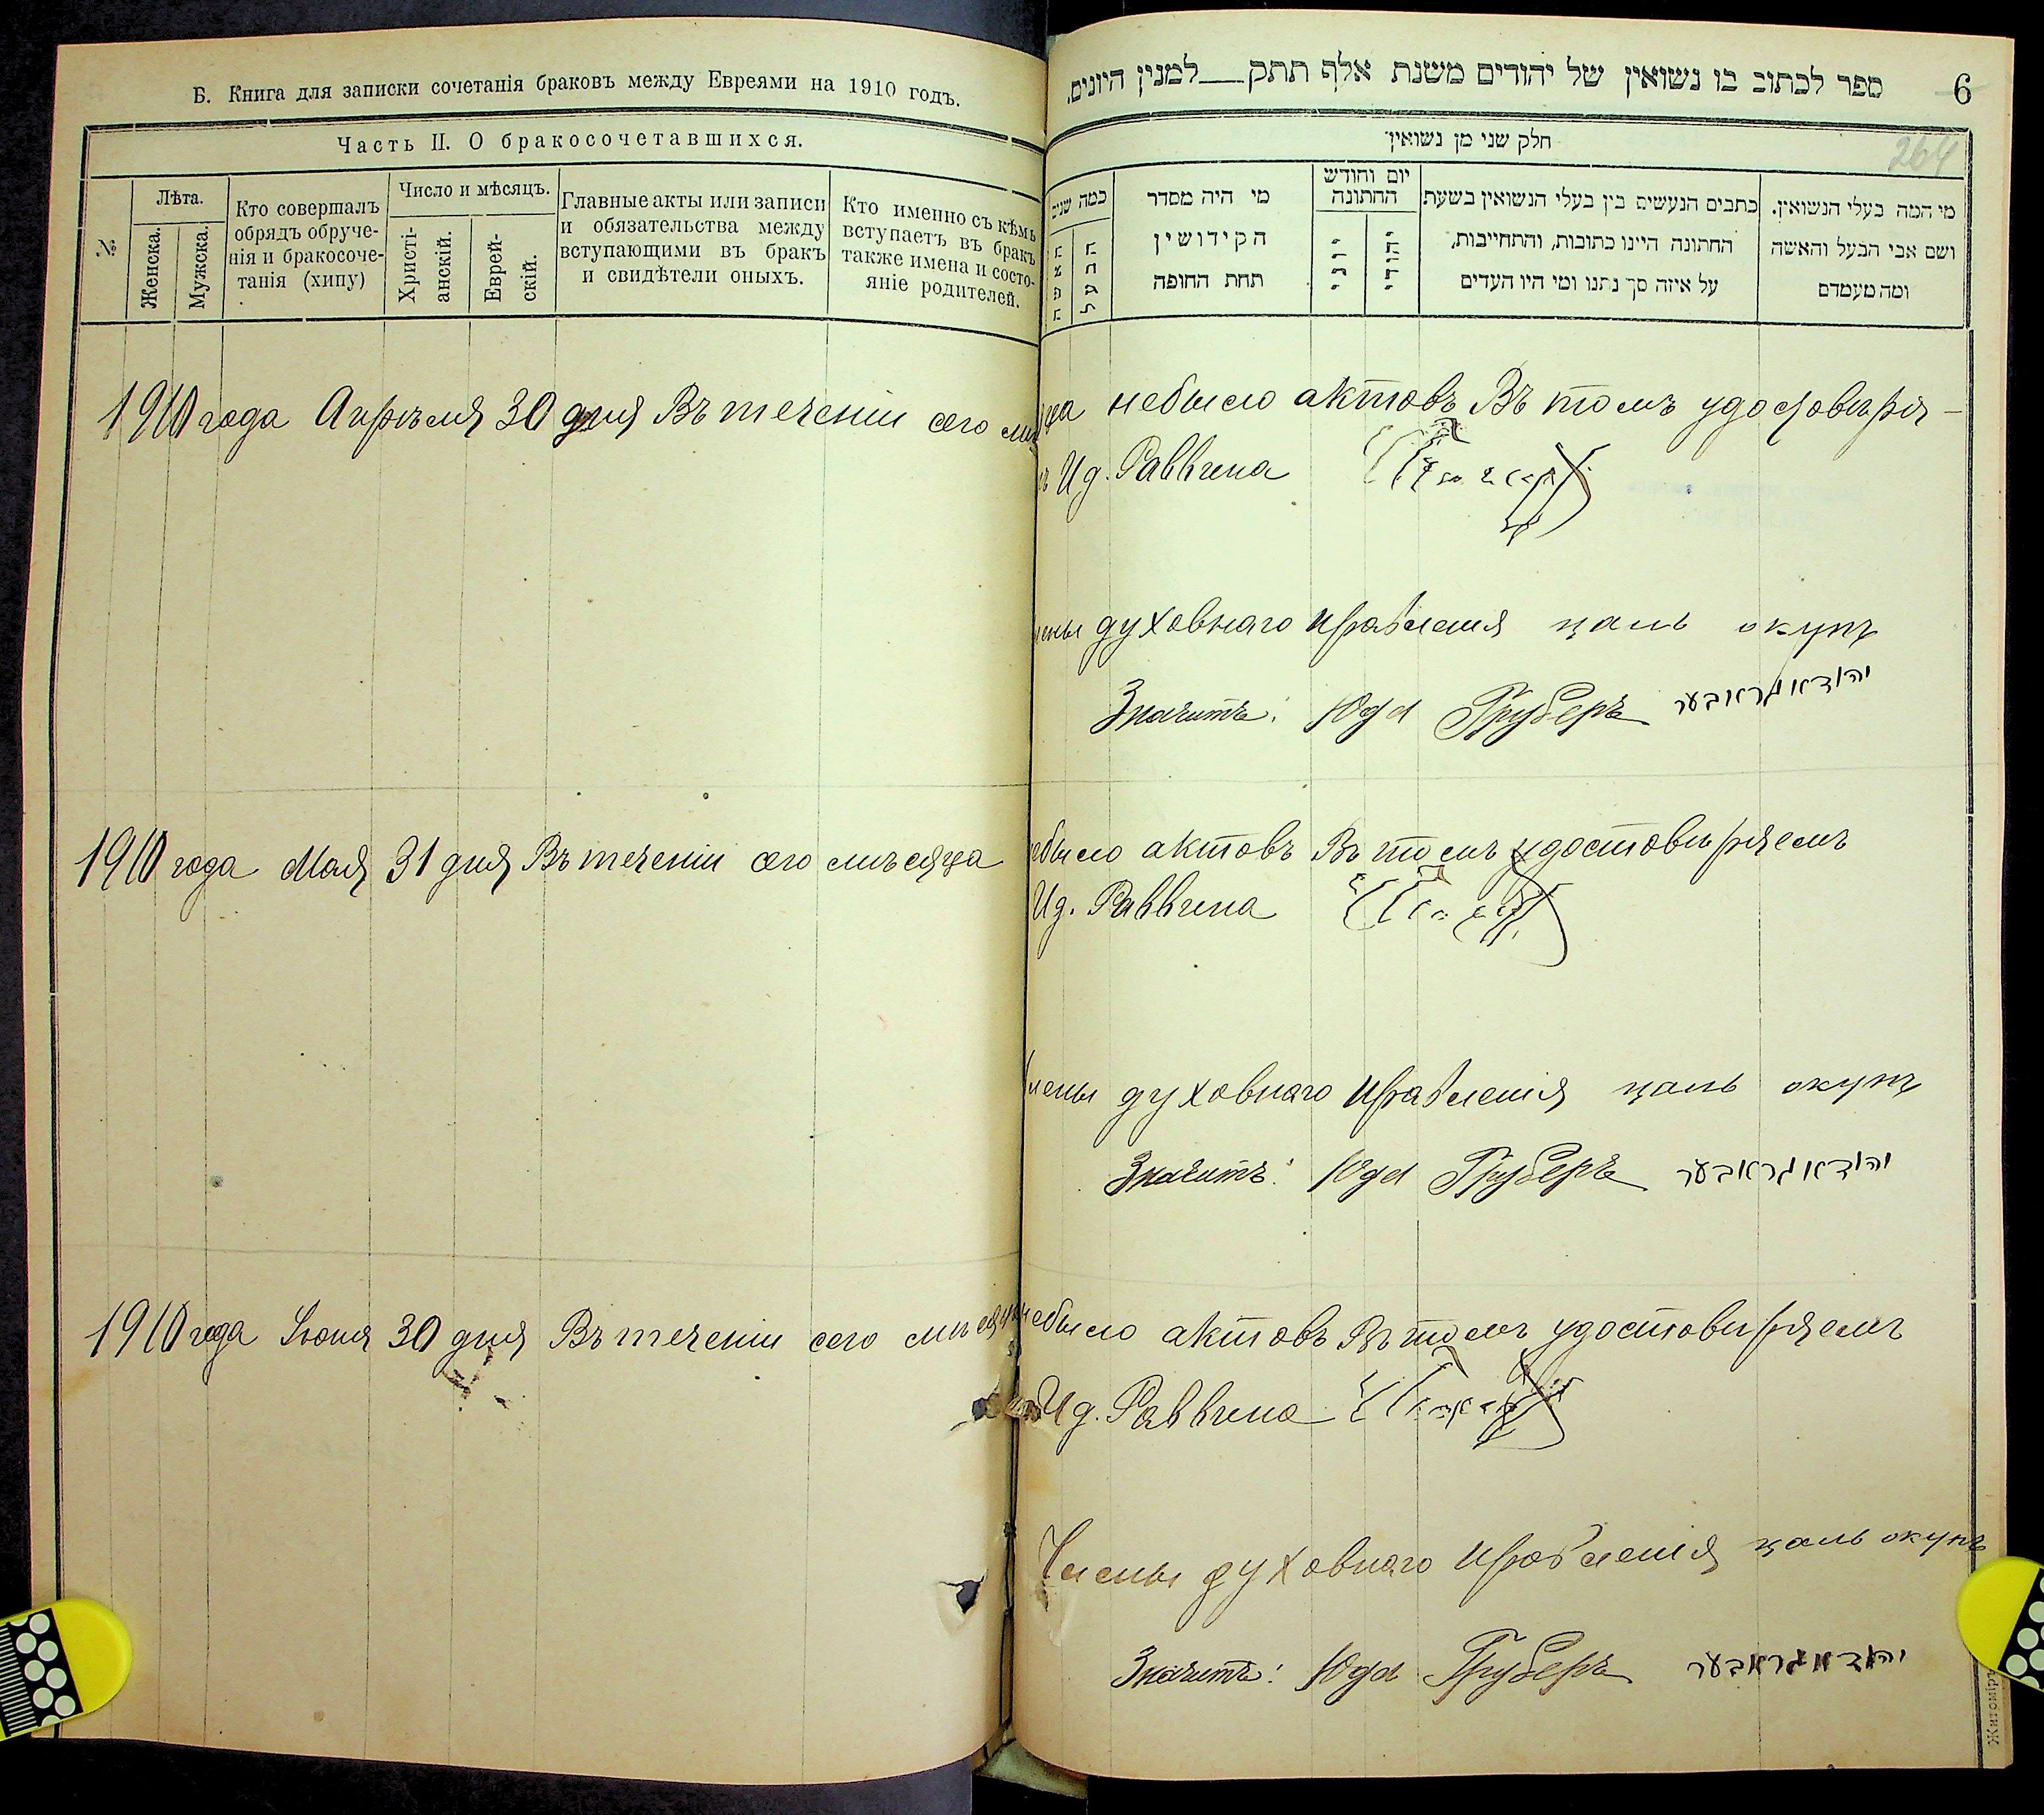 Б. Книга для записки сочетанія браковъ между Евреями на 1910 годъ.
Часть II. О бракосочетавшихся.
№
Лѣта.
Женска.
Мужска.
Кто совершалъ
обрядъ обруче-
нія и бракосоче-
танія (хипу)
Число и мѣсяцъ.
Христі-
анскій.
Еврей-
скій.
Главные акты или записи
и обязательства между
вступающими въ бракъ
и свидѣтели оныхъ.
Кто именно съ кѣмъ
вступаетъ въ бракъ
также имена и состо-
яніе родителей.
ספר לכתוב בו נשואין של יהודים משנת אלף תתק — למנין היונים.
6
264
חלק שני מן נשואין
מי המה בעלי הנשואין.
ושם אבי הבעל והאשה
ומה מעמדם
כתבים הנעשים בין בעלי הנשואין בשעת
החתונה היינו כתובות, והתחייבות,
על איזה סך נתנו ומי היו העדים
יום וחודש
החתונה
יהודי
יוני
מי היה מסדר
הקידושין
תחת החופה
כמה שנים
הבעל
האשה
1910 года Апрѣля 30 дня Въ теченіи сего мѣсяца небыло актовъ Въ томъ удостовѣря-
Ид. Раввина
члены духовнаго правленія цаль окупъ
Значитъ: Юда Груберъ יהודא גראבער
1910 года Мая 31 дня Въ теченіи сего мѣсяца небыло актовъ Въ томъ удостовѣряемъ
Ид. Раввина
Члены духовнаго правленія цаль окупъ
Значитъ: Юда Груберъ יהודא גראבער
1910 года Іюня 30 дня Въ теченіи сего мѣсяца небыло актовъ Въ томъ удостовѣряемъ
Ид. Раввина
Члены духовнаго правленія цаль окупъ
Значитъ: Юда Груберъ יהודא גראבער
Житоміръ